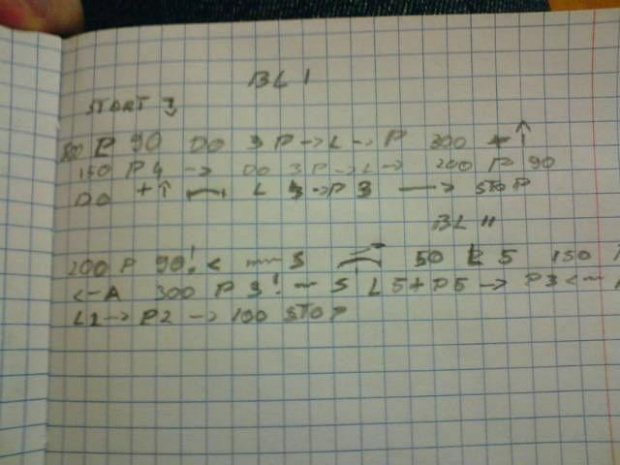 BL I
START 3
P 90 DO 3 P → L → P 300 + ↑
150 P4 → DO 3 P → L → 200 P 90
DO + ↑ L 3 → P 3 → STOP
BL II
200 P 90! < S 50 5 150
<-A 300 P 3! ~ S L 5 + P5 → P3 <~
→ P2 → 100 STOP